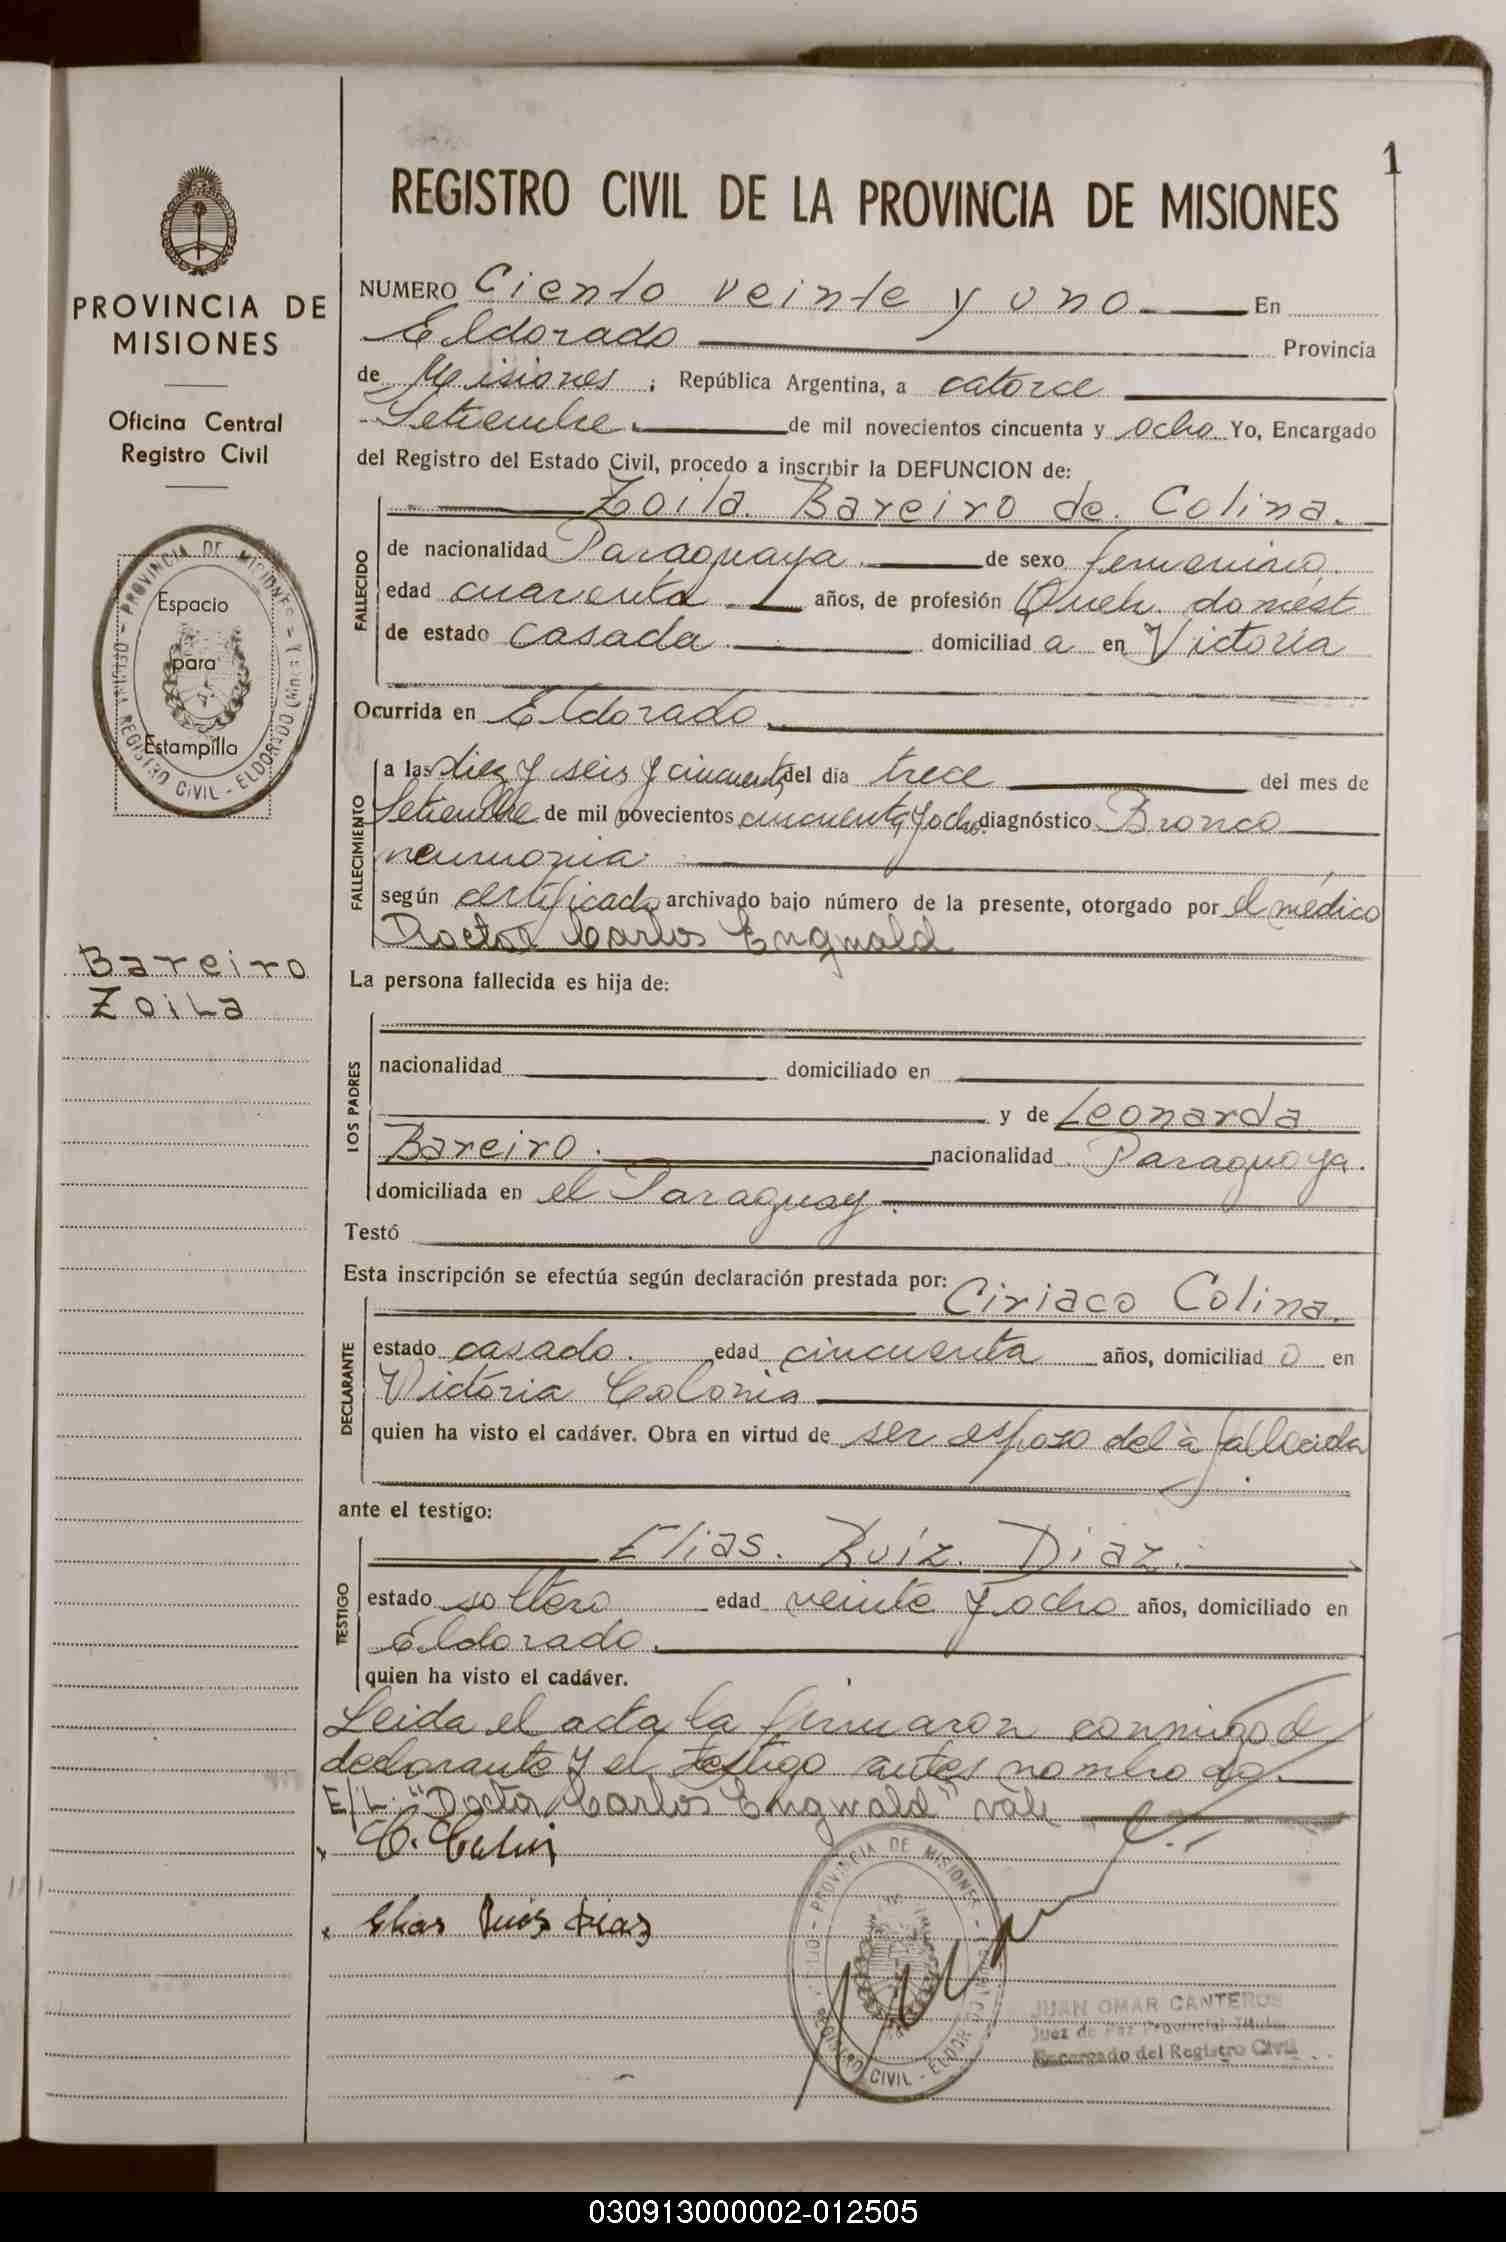 1
REGISTRO CIVIL DE LA PROVINCIA DE MISIONES
PROVINCIA DE
MISIONES
Oficina Central
Registro Civil
PROVINCIA DE MISIONES
REGISTRO CIVIL - ELDORADO
Espacio
para
Estampilla
Bareiro
Zoila
NUMERO Ciento veinte y uno En
Eldorado Provincia
de Misiones ; República Argentina, a catorce
Setiembre de mil novecientos cincuenta y ocho. Yo, Encargado
del Registro del Estado Civil, procedo a inscribir la DEFUNCION de:
Zoila Bareiro de Colina.
FALLECIDO
de nacionalidad Paraguaya. de sexo femenino.
edad cuarenta años, de profesión Queh. domést
de estado casada. domiciliad a en Victoria
Ocurrida en Eldorado.
FALLECIMIENTO
a las diez y seis y cincuenta del dia trece del mes de
Setiembre de mil novecientos cincuenta y ocho. diagnóstico Bronco
neumonia.
según certificado archivado bajo número de la presente, otorgado por el médico
Doctor Carlos Engwald
La persona fallecida es hija de:
LOS PADRES
nacionalidad domiciliado en
y de Leonarda
Bareiro. nacionalidad Paraguaya.
domiciliada en el Paraguay.
Testó
Esta inscripción se efectúa según declaración prestada por: Ciriaco Colina.
DECLARANTE
estado casado. edad cincuenta años, domiciliad o en
Victória Colonia
quien ha visto el cadáver. Obra en virtud de ser esposo de la fallecida
ante el testigo:
Elias. Ruíz. Diaz.
TESTIGO
estado soltero edad veinte y ocho años, domiciliado en
Eldorado.
quien ha visto el cadáver.
Leida el acta la firmaron conmigo el
declarante y el testigo antes nombrado.
E/L. "Doctor Carlos Engwald" vale
Elias Ruis Dias
PROVINCIA DE MISIONES
REGISTRO CIVIL - ELDORADO
JUAN OMAR CANTEROS
Juez de Paz Provincial Titular
Encargado del Registro Civil
030913000002-012505